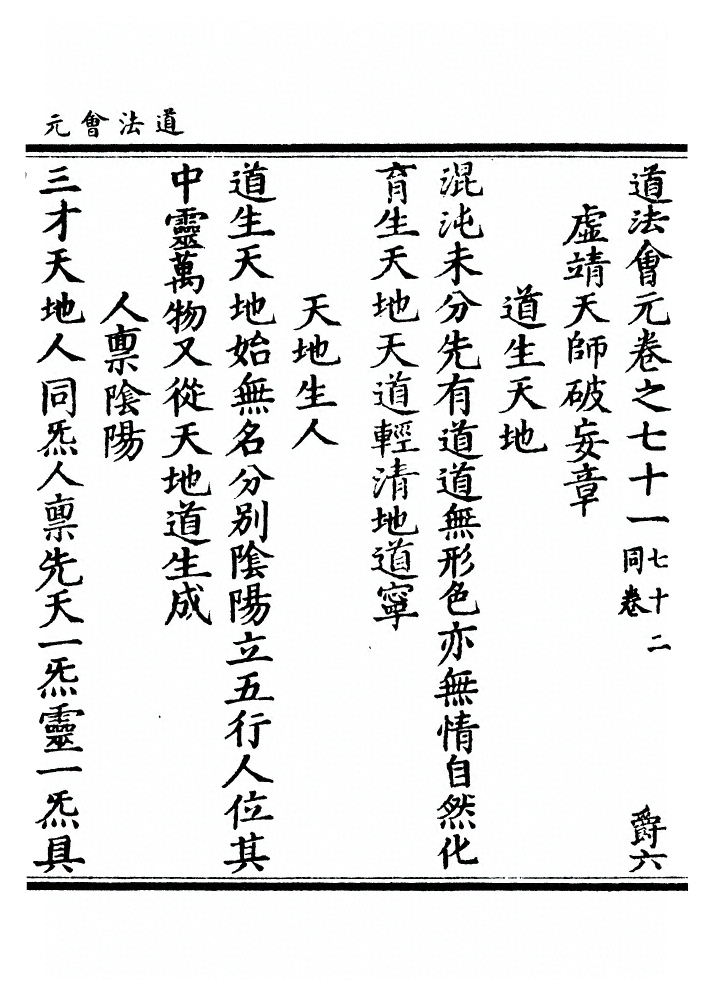 道法會元
道法會元卷之七十一七十二同卷 爵六
虛靖天師破妄章
道生天地
混沌未分先有道道無形色亦無情自然化
育生天地天道輕清地道寧
天地生人
道生天地始無名分別陰陽立五行人位其
中靈萬物又從天地道生成
人禀陰陽
三才天地人同炁人禀先天一炁靈一炁具